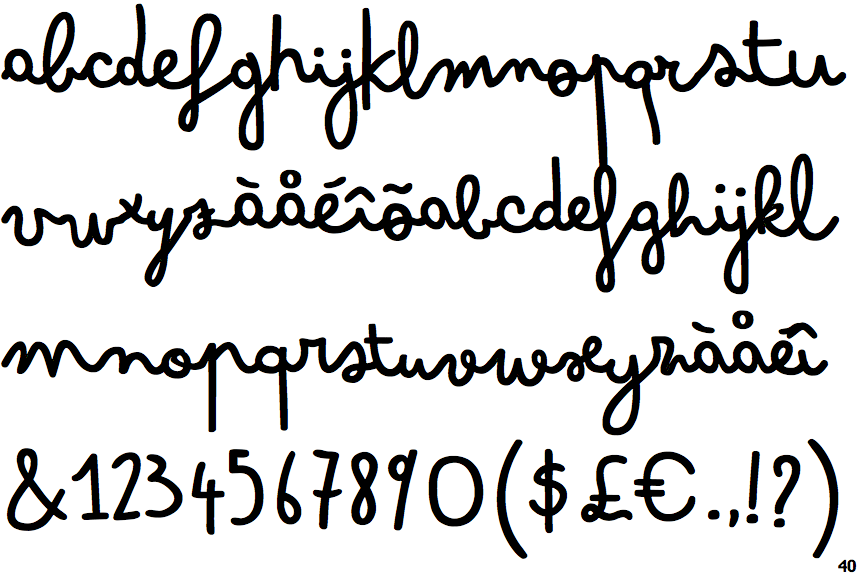 abcdefghijklmnopqrstu
vwxyzàåéîõabcdefghijkl
mnopqrstuvwxyzàåéî
&1234567890($£€.,!?)
40